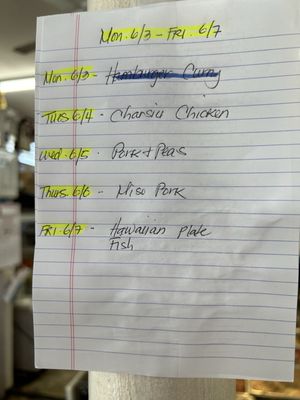 Mon. 6/3 - Fri. 6/7
Mon. 6/3 - Hamburger Curry
Tues. 6/4 - Charsiu Chicken
Wed. 6/5 - Pork + Peas
Thurs. 6/6 - Miso Pork
Fri. 6/7 - Hawaiian Plate
Fish